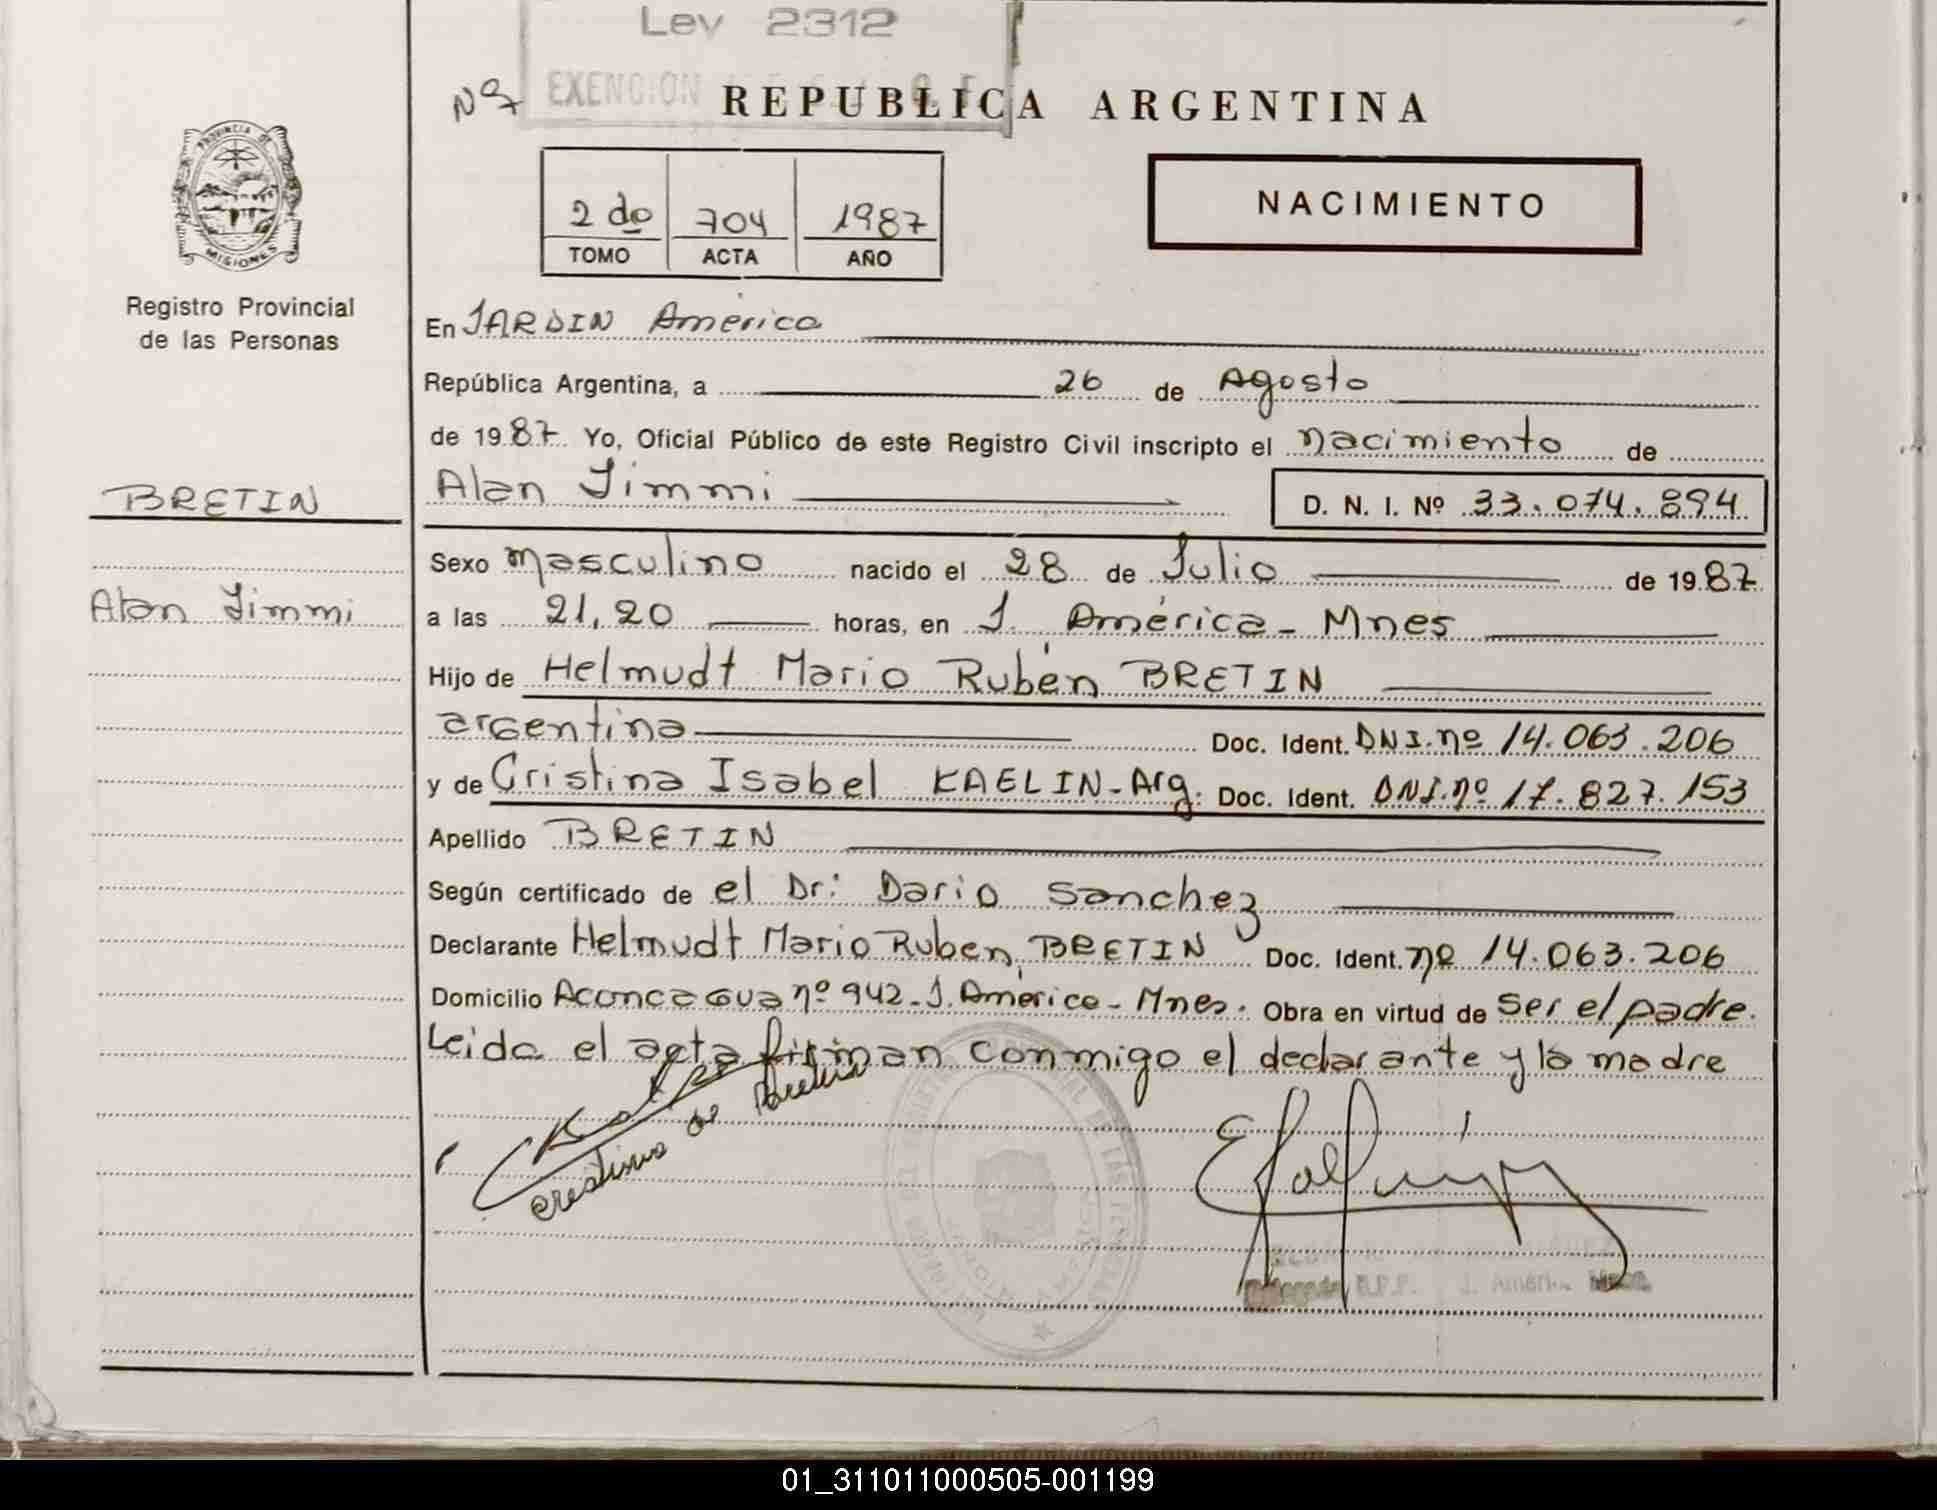 Ley 2312
EXENCION
Nº 7
REPUBLICA ARGENTINA
PROVINCIA DE
MISIONES
Registro Provincial
de las Personas
2 do 704 1987
TOMO ACTA AÑO
NACIMIENTO
En JARDIN América
República Argentina, a 26 de Agosto
de 1987 Yo, Oficial Público de este Registro Civil inscripto el nacimiento de
BRETIN
Alan Jimmi D. N. I. Nº 33.074.894
Sexo masculino nacido el 28 de Julio de 1987
Alan Jimmi
a las 21,20 horas, en J. América - Mnes
Hijo de Helmudt Mario Rubén BRETIN
argentina Doc. Ident. DNI. nº 14.063.206
y de Cristina Isabel KAELIN - Arg. Doc. Ident. DNI. nº 17.827.153
Apellido BRETIN
Según certificado de el Dr: Dario Sanchez
Declarante Helmudt Mario Ruben, BRETIN Doc. Ident. nº 14.063.206
Domicilio Aconcagua nº 942 - J. América - Mnes. Obra en virtud de Ser el padre.
Leida el acta firman conmigo el declarante y la madre
Cristina de Bretin
R.P.P. J. Améri
01_311011000505-001199